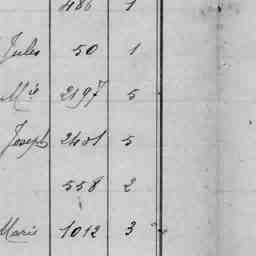 486 1
Jules 50 1
Mie 2197 5
Joseph 2401 5
558 2
Marie 1012 3